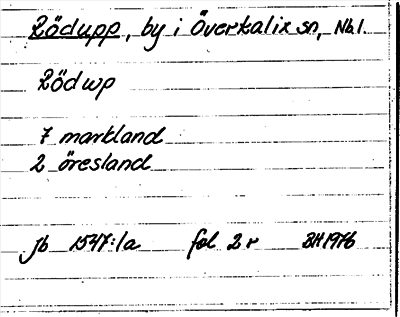 Rödupp, by i Överkalix sn, Nb l.
Rödwp
7 markland
2 öresland
jb 1547:1a fol 2 r BH 1976